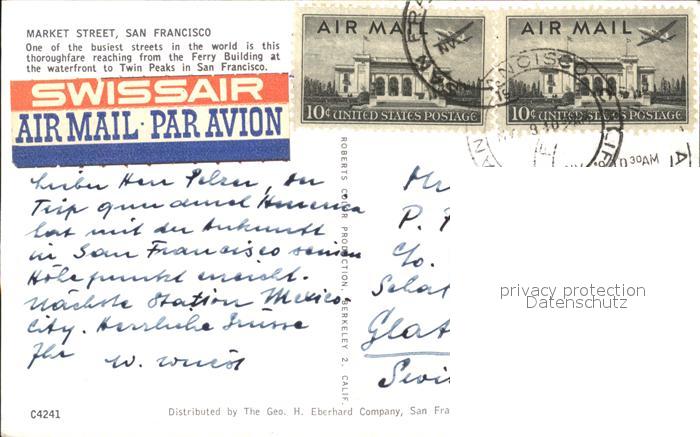 MARKET STREET, SAN FRANCISCO
One of the busiest streets in the world is this
thoroughfare reaching from the Ferry Building at
the waterfront to Twin Peaks in San Francisco.
SWISSAIR
AIR MAIL · PAR AVION
AIR MAIL
10¢ UNITED STATES POSTAGE
AIR MAIL
10¢ UNITED STATES POSTAGE
SAN FRANCISCO
CALIF.
30AM
Lieber Herr Pelzer, der
Trip quer durch America
hat mit der Ankunft
in San Francisco seinen
Höhepunkt erreicht.
Nächste Station Mexico
City. Herrliche Grüsse
Ihr W.
ROBERTS COLOR PRODUCTION, BERKELEY 2, CALIF.
P.
C/o.
Glat
privacy protection
Datenschutz
C4241
Distributed by The Geo. H. Eberhard Company, San Fra